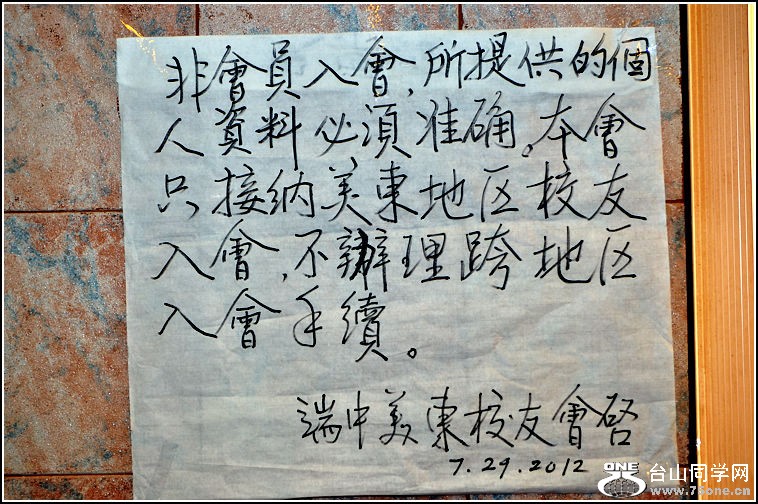 非會員入會,所提供的個
人資料必須准确。本會
只接纳美東地区校友
入會,不辦理跨地区
入會手續。
端中美東校友會啓
7.29.2012
ONE 台山同学网
www.75one.cn